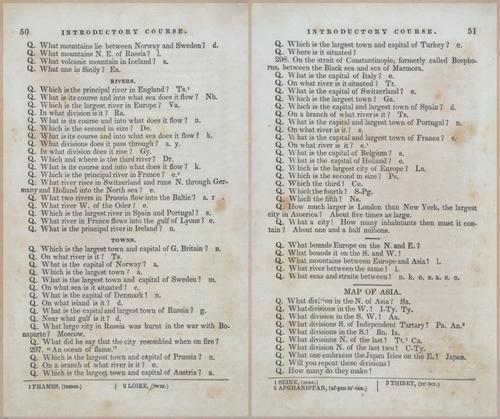 50 INTRODUCTORY COURSE.
Q. What mountains lie between Norway and Sweden? d.
Q. What mountains N. E. of Russia? l.
Q. What volcanic mountain in Iceland? a.
Q. What one is Sicily? Ea.
RIVERS.
Q. Which is the principal river in England? Ts.¹
Q. What is its course and into what sea does it flow? Nh.
Q. Which is the largest river in Europe? Va.
Q. In what division is it? Ra.
Q. What is its course and into what does it flow? n.
Q. Which is the second in size? De.
Q. What is its course and into what sea does it flow? k.
Q. What divisions does it pass through? a. y.
Q. In what division does it rise? Gy.
Q. Which and where is the third river? Dr.
Q. What is its course and into what does it flow? k.
Q. Which is the principal river in France? e.²
Q. What river rises in Switzerland and runs N. through Ger-
many and Holland into the North sea? e.
Q. What two rivers in Prussia flow into the Baltic? a. r
Q. What river W. of the Oder? e.
Q. Which is the largest river in Spain and Portugal? s.
Q. What river in France flows into the gulf of Lyons? e.
Q. What is the principal river in Ireland? n.
TOWNS.
Q. Which is the largest town and capital of G. Britain? n.
Q. On what river is it? Ts.
Q. What is the capital of Norway? a.
Q. Which is the largest town? a.
Q. What is the largest town and capital of Sweden? m.
Q. On what sea is it situated? c.
Q. What is the capital of Denmark? n.
Q. On what island is it? d.
Q. What is the capital and largest town of Russia? g.
Q. Near what gulf is it? d.
Q. What large city in Russia was burst in the war with Bo-
naparte? Moscow.
Q. What did he say that the city resembled when on fire?
297. "An ocean of flame."
Q. Which is the largest town and capital of Prussia? n.
Q. On a branch of what river is it? e.
Q. Which is the largest town and capital of Austria? a.
1 THAMES, (temes.) 2 LOIRE,
INTRODUCTORY COURSE. 51
Q. Which is the largest town and capital of Turkey? e.
Q. Where is it situated?
298. On the strait of Constantinople, formerly called Bospho-
rus, between the Black sea and sea of Marmora.
Q. What is the capital of Italy? e.
Q. On what river is it situated? Tr.
Q. What is the capital of Switzerland? e.
Q. Which is the largest town? Ga.
Q. Which is the capital and largest town of Spain? d.
Q. On a branch of what river is it? Ts.
Q. What is the capital and largest town of Portugal? n.
Q. On what river is it? s.
Q. What is the capital and largest town of France? s.
Q. On what river is it? e.¹
Q. What is the capital of Belgium? s.
Q. What is the capital of Holland? e.
Q. Which is the largest city of Europe? Ln.
Q. Which is the second in size? Ps.
Q. Which the third? Ce.
Q. Which the fourth? S-Pg.
Q. Which the fifth? Ns.
Q. How much larger is London than New York, the largest
city in America? About five times as large.
Q. What a city! How many inhabitants then must it con-
tain? About one and a half millions.
Q. What bounds Europe on the N. and E.?
Q. What bounds it on the S. and W.?
Q. What mountains between Europe and Asia? l.
Q. What river between the same? l.
Q. What seas and straits between? n. k. e. s. a. s. o.
MAP OF ASIA.
Q. What division in the N. of Asia? Sa.
Q. What divisions in the W.? I.-Ty. Ty.
Q. What division in the S. W.? Aa.
Q. What divisions S. of Independent Tartary? Pa. An.²
Q. What divisions in the S.? Bn. Is.
Q. What divisions N. of the last? Tt.³ Ca.
Q. What division N. of the last two? C-Ty.
Q. What one embraces the Japan Isles on the E.? Japan.
Q. Will you repeat these divisions?
Q. How many do they make?
1 SEINE, (sane.) 3 THIBET, (te'-bet.)
2 AFGHANISTAN, (af-gan-is'-tan.)